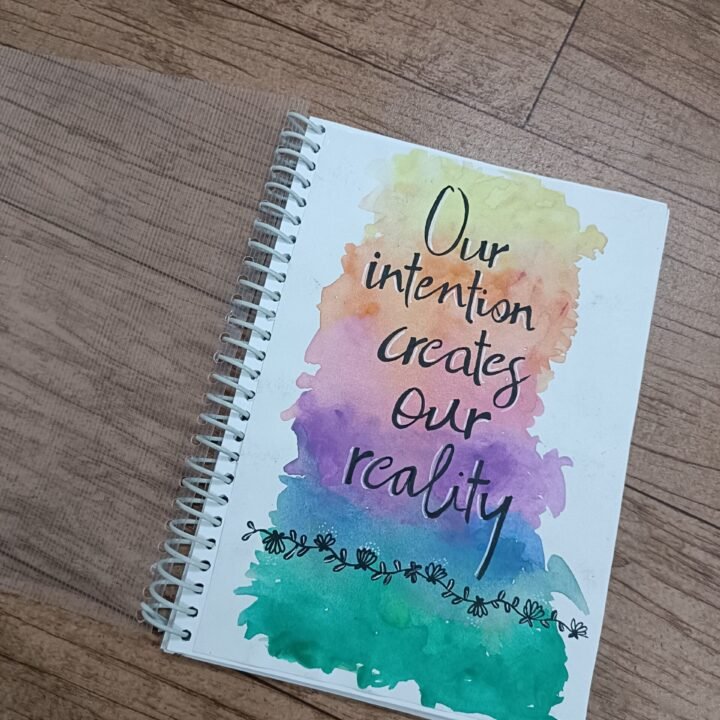 Our
intention
creates
our
reality